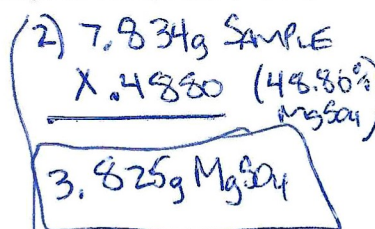 2) 7.834g SAMPLE
X .4880 (48.80%
MgSO4)
3.825g MgSO4